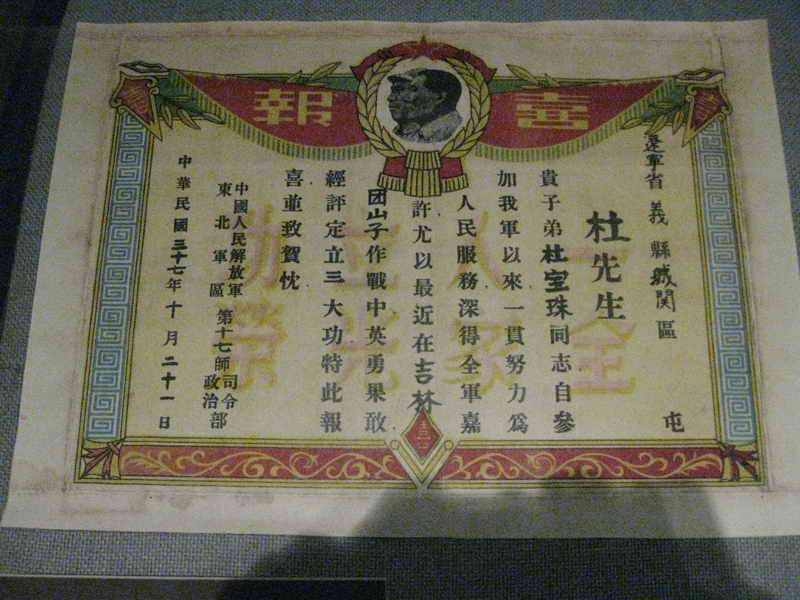 喜報
一人立功
全家光榮
遼寧省義縣城関區 屯
杜先生
貴子弟杜宝珠同志自參
加我軍以來一貫努力爲
人民服務深得全軍嘉
許.尤以最近在吉林
团山子作戰中英勇果敢.
經評定立三大功特此報
喜並致賀忱.
中國人民解放軍
東北軍區 第十七師司令
政治部
中華民國三十七年十月二十一日